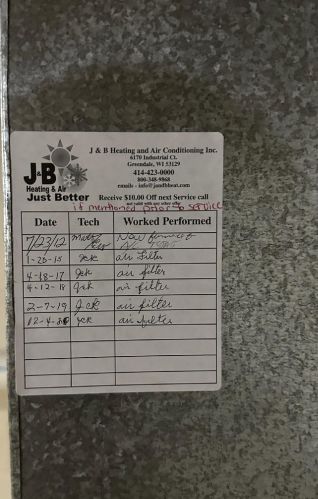 J & B Heating and Air Conditioning Inc.
6170 Industrial Ct.
Greendale, WI 53129
414-423-0000
800-348-9868
emails - info@jandbheat.com
J&B
Heating & Air
Just Better
Receive $10.00 Off next Service call
not valid with any other offer
if mentioned prior to service
Date Tech Worked Performed
7/23/12 New Furnace
1-26-15 Jck air Filter
4-18-17 Jck air filter
4-12-18 Jck air filter
2-7-19 Jck air filter
12-4- Jck air filter